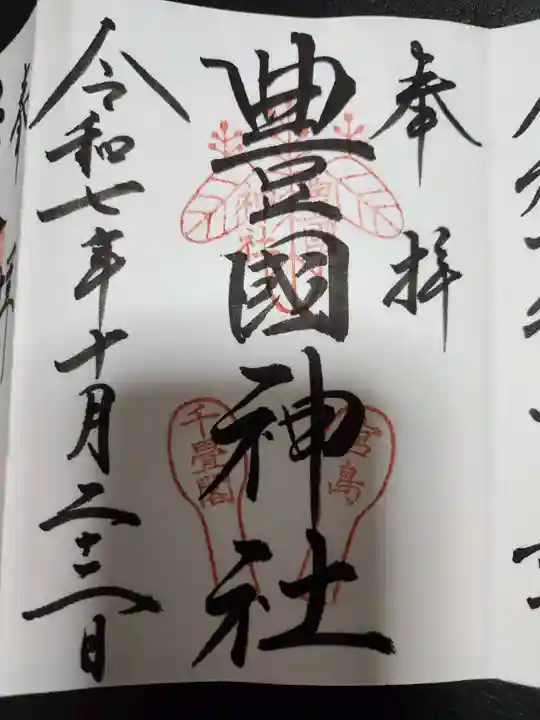 奉拝
豊國神社
豊國神社
宮島
千畳閣
令和七年十月二十二日